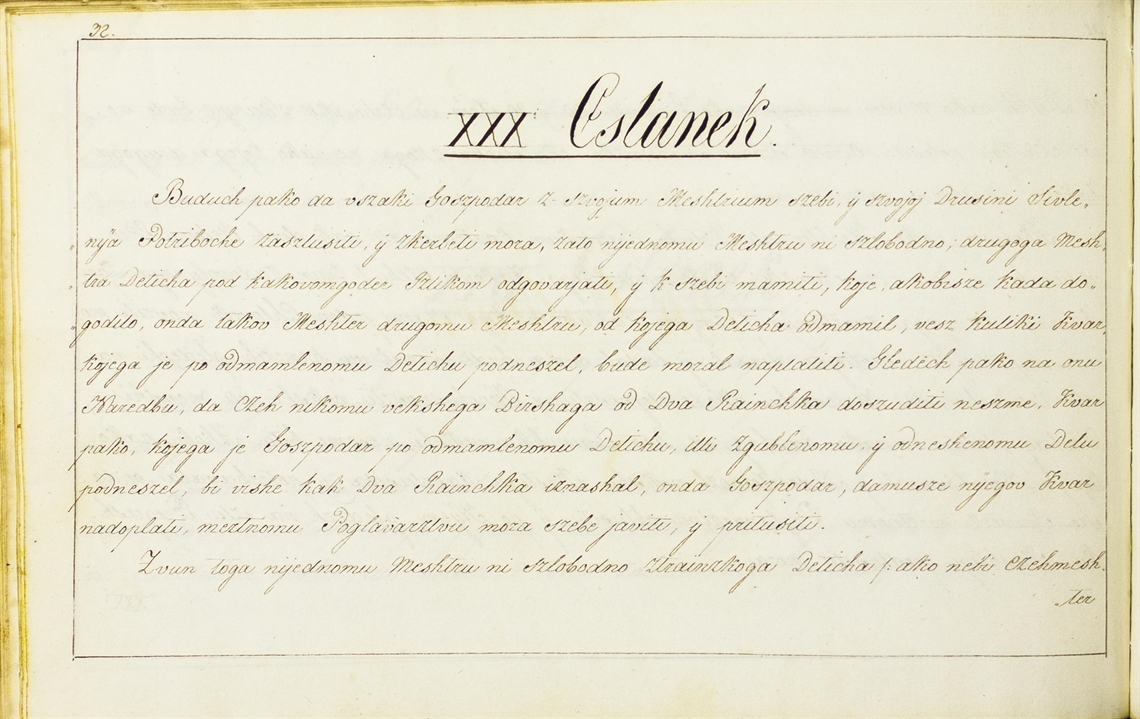 32.
XXX Cslanek.
Buduch pako da vszaki Goszpodar z-szvojum Meshtrium szebi, ÿ szvojoj Drusini Sivle„
„nÿa Potriboche zaszlusiti, ÿ zkerbeti mora, zato nijednomu Meshtru ni szlobodno, drugoga Mesh„
„tra Deticha pod kakovomgoder Izlikom odgovarjati, ÿ k-szebi mamiti, koje, akobisze kada do„
„godilo, onda takov Meshter drugomu Meshtru, od kojega Deticha odmamil, vesz kulikï Kvar,
kojega je po odmamlenomu Detichu podneszel, bude moral naplatiti. Gledéch pako na onu
Naredbu, da Czeh nikomu vekshega Birshaga od Dva Rainchka doszuditi neszme, Kvar
pako, kojega je Goszpodar po odmamlenomu Detichu, illi zgublenomu ÿ odneshenomu Delu
podneszel, bi vishe kak Dva Rainchka iznashal, onda Goszpodar, damusze njegov Kvar
nadoplati, mesztnomu Poglavarztvu mora szebe javiti, ÿ pritusiti.
Zvun toga nijednomu Meshtru ni szlobodno ztrainzkoga Deticha /: ako nebi Czehmesh„
„ter